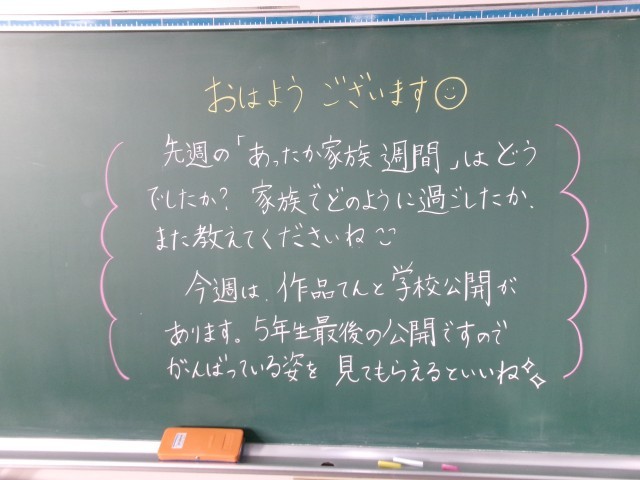 おはようございます
先週の「あったか家族週間」はどう
でしたか？ 家族でどのように過ごしたか、
また教えてくださいね
今週は、作品てんと学校公開が
あります。5年生最後の公開ですので
がんばっている姿を見てもらえるといいね